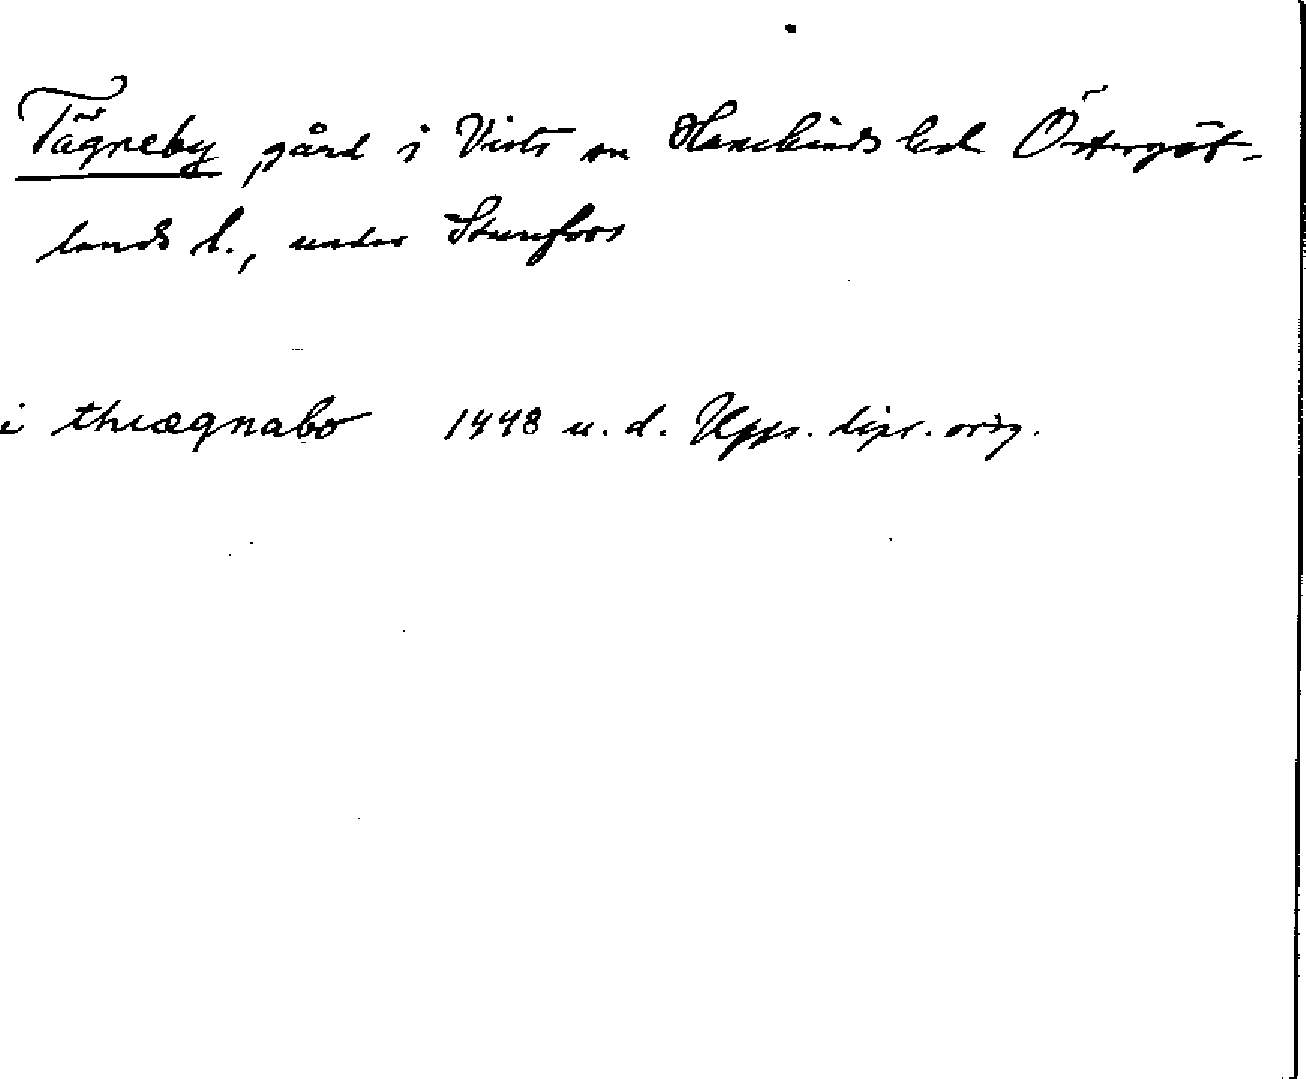 Tägneby, gård i Vists sn Hanekinds hd Östergöt-
lands l., under Sturefors
i thiægnabo 1448 u. d. Upps. dipl. orig.